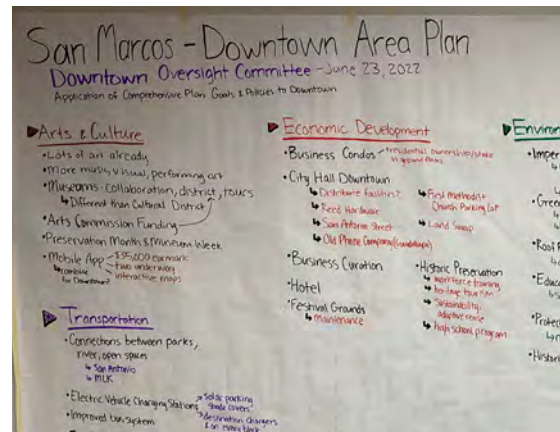 San Marcos - Downtown Area Plan
Downtown Oversight Committee - June 23, 2022
Application of Comprehensive Plan Goals & Policies to Downtown
Arts & Culture
• Lots of art already
• More music, visual, performing art
• Museums - collaboration, district, tours
↳ Different than Cultural District
• Arts Commission Funding
• Preservation Month & Museum Week
• Mobile App
$35,000 earmark
two underway
interactive maps
↳ combine for Downtown?
Transportation
• Connections between parks,
river, open spaces
↳ San Antonio
↳ MLK
• Electric Vehicle Charging Stations
solar parking
shade covers
destination chargers
& on every block
• Improved bus system
Economic Development
• Business Condos
residential ownership/stake
in ground floors
• City Hall Downtown
↳ Distribute facilities?
↳ Reed Hardware
↳ San Antonio Street
↳ Old Phone Company (Guadalupe)
↳ First Methodist
Church Parking Lot
↳ Land Swap
• Business Curation
• Hotel
• Festival Grounds
↳ maintenance
• Historic Preservation
↳ workforce training
↳ heritage tourism
↳ Sustainability,
adaptive reuse
↳ high school program
Environ
• Imper
• Gree
• Roof
• Educa
• Protec
• Histori